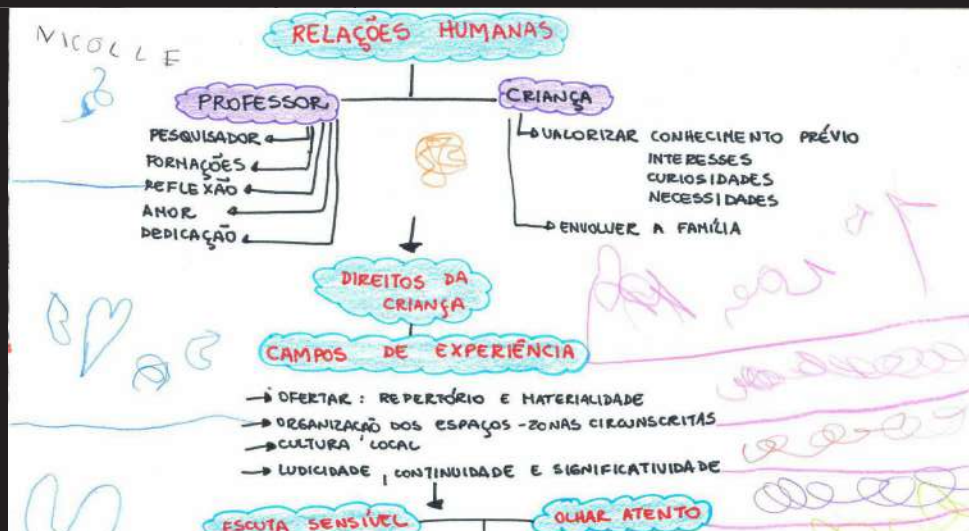 NICOLLE
RELAÇÕES HUMANAS
PROFESSOR
PESQUISADOR
FORMAÇÕES
REFLEXÃO
AMOR
DEDICAÇÃO
CRIANÇA
VALORIZAR CONHECIMENTO PRÉVIO
INTERESSES
CURIOSIDADES
NECESSIDADES
ENVOLVER A FAMÍLIA
DIREITOS DA
CRIANÇA
CAMPOS DE EXPERIÊNCIA
OFERTAR: REPERTÓRIO E MATERIALIDADE
ORGANIZAÇÃO DOS ESPAÇOS - ZONAS CIRCUNSCRITAS
CULTURA LOCAL
LUDICIDADE, CONTINUIDADE E SIGNIFICATIVIDADE
ESCUTA SENSÍVEL
OLHAR ATENTO